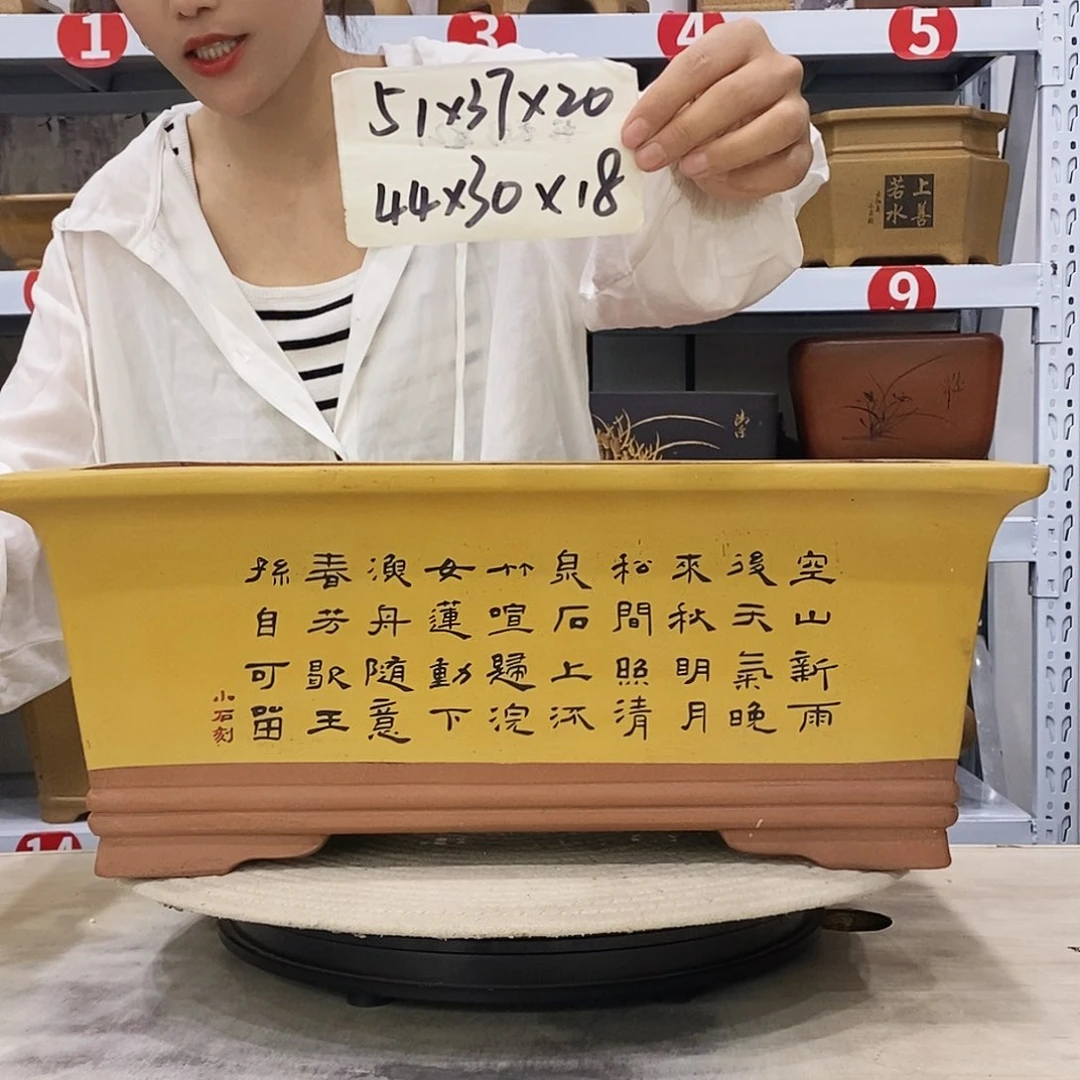 1
3
4
5
51x37x20
44x30x18
上善
若水
9
空山新雨
後天氣晚
來秋明月
松間照清
泉石上流
竹喧歸浣
女蓮動下
漁舟隨意
春芳歇王
孫自可留
小石刻
14